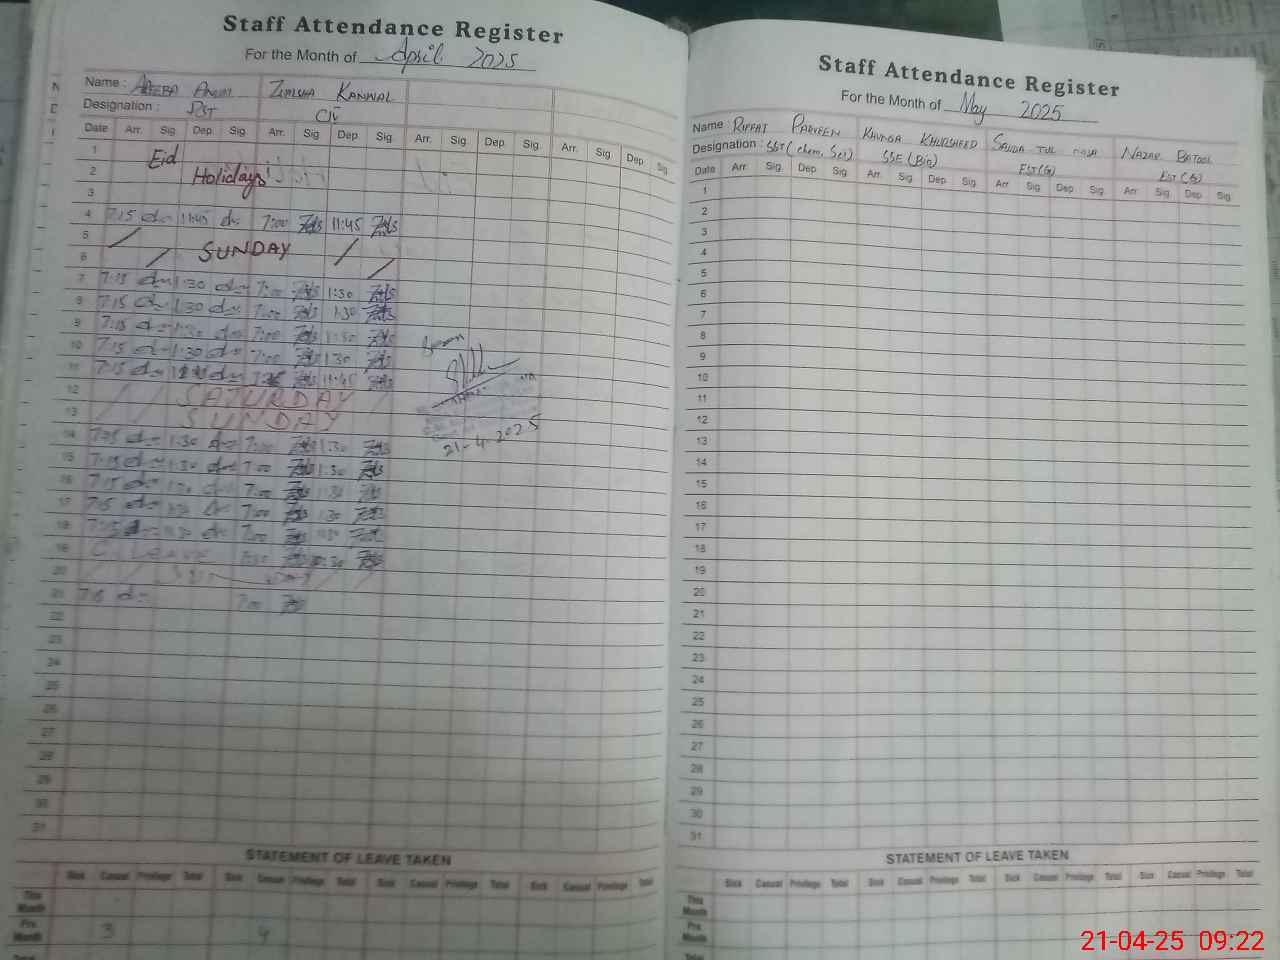 Staff Attendance Register
For the Month of April 2025
Name : AREEBA Zumha KANWAL
Designation : PST CIV
Date Arr. Sig. Dep. Sig. Arr. Sig. Dep. Sig. Arr. Sig. Dep. Sig. Arr. Sig. Dep. Sig.
1 Eid
2 Holidays
3
4 7:15 11:45 7:00 11:45
5
6 SUNDAY
7 7:15 1:30 7:00 1:30
8 7:15 1:30 7:00 1:30
9 7:15 1:30 7:00 1:30
10 7:15 1:30 7:00 1:30
11 7:15 11:45
12 SATURDAY
13 SUNDAY
21-4-2025
14 7:15 1:30 7:00 1:30
15 7:15 1:30 7:00 1:30
16 7:15 7:00 1:30
17 7:15 7:00 1:30
18 7:15 7:00
19 C. LEAVE
20 Sunday
21 7:15 7:00
22
23
24
25
26
27
28
29
30
31
STATEMENT OF LEAVE TAKEN
Sick Casual Privilege Total Sick Casual Privilege Total Sick Casual Privilege Total Sick Casual Privilege Total
This Month
Pre. Month 3 4
Total
Staff Attendance Register
For the Month of May 2025
Name RIFFAT PARVEEN KHURSHEED NAZAR BATOOL
Designation : SST( chem, Sci) SSE (Bio) EST(G) EST(G)
Date Arr. Sig. Dep. Sig. Arr. Sig. Dep. Sig. Arr. Sig. Dep. Sig. Arr. Sig. Dep. Sig.
1
2
3
4
5
6
7
8
9
10
11
12
13
14
15
16
17
18
19
20
21
22
23
24
25
26
27
28
29
30
31
STATEMENT OF LEAVE TAKEN
Sick Casual Privilege Total Sick Casual Privilege Total Sick Casual Privilege Total Sick Casual Privilege Total
This Month
Pre. Month
Total
21-04-25 09:22